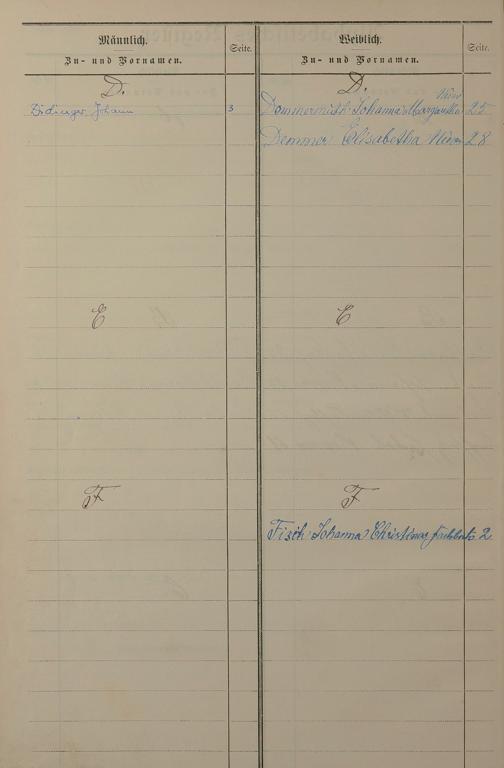 Männlich.
Zu- und Vornamen.
Seite.
Weiblich.
Zu- und Vornamen.
Seite.
D.
Didinger Johann 3
D.
Dommermuth Johanna Margaretha 25
Demmer Elisabetha 28
E
E
F
F
Fisch Johanna Christina 2